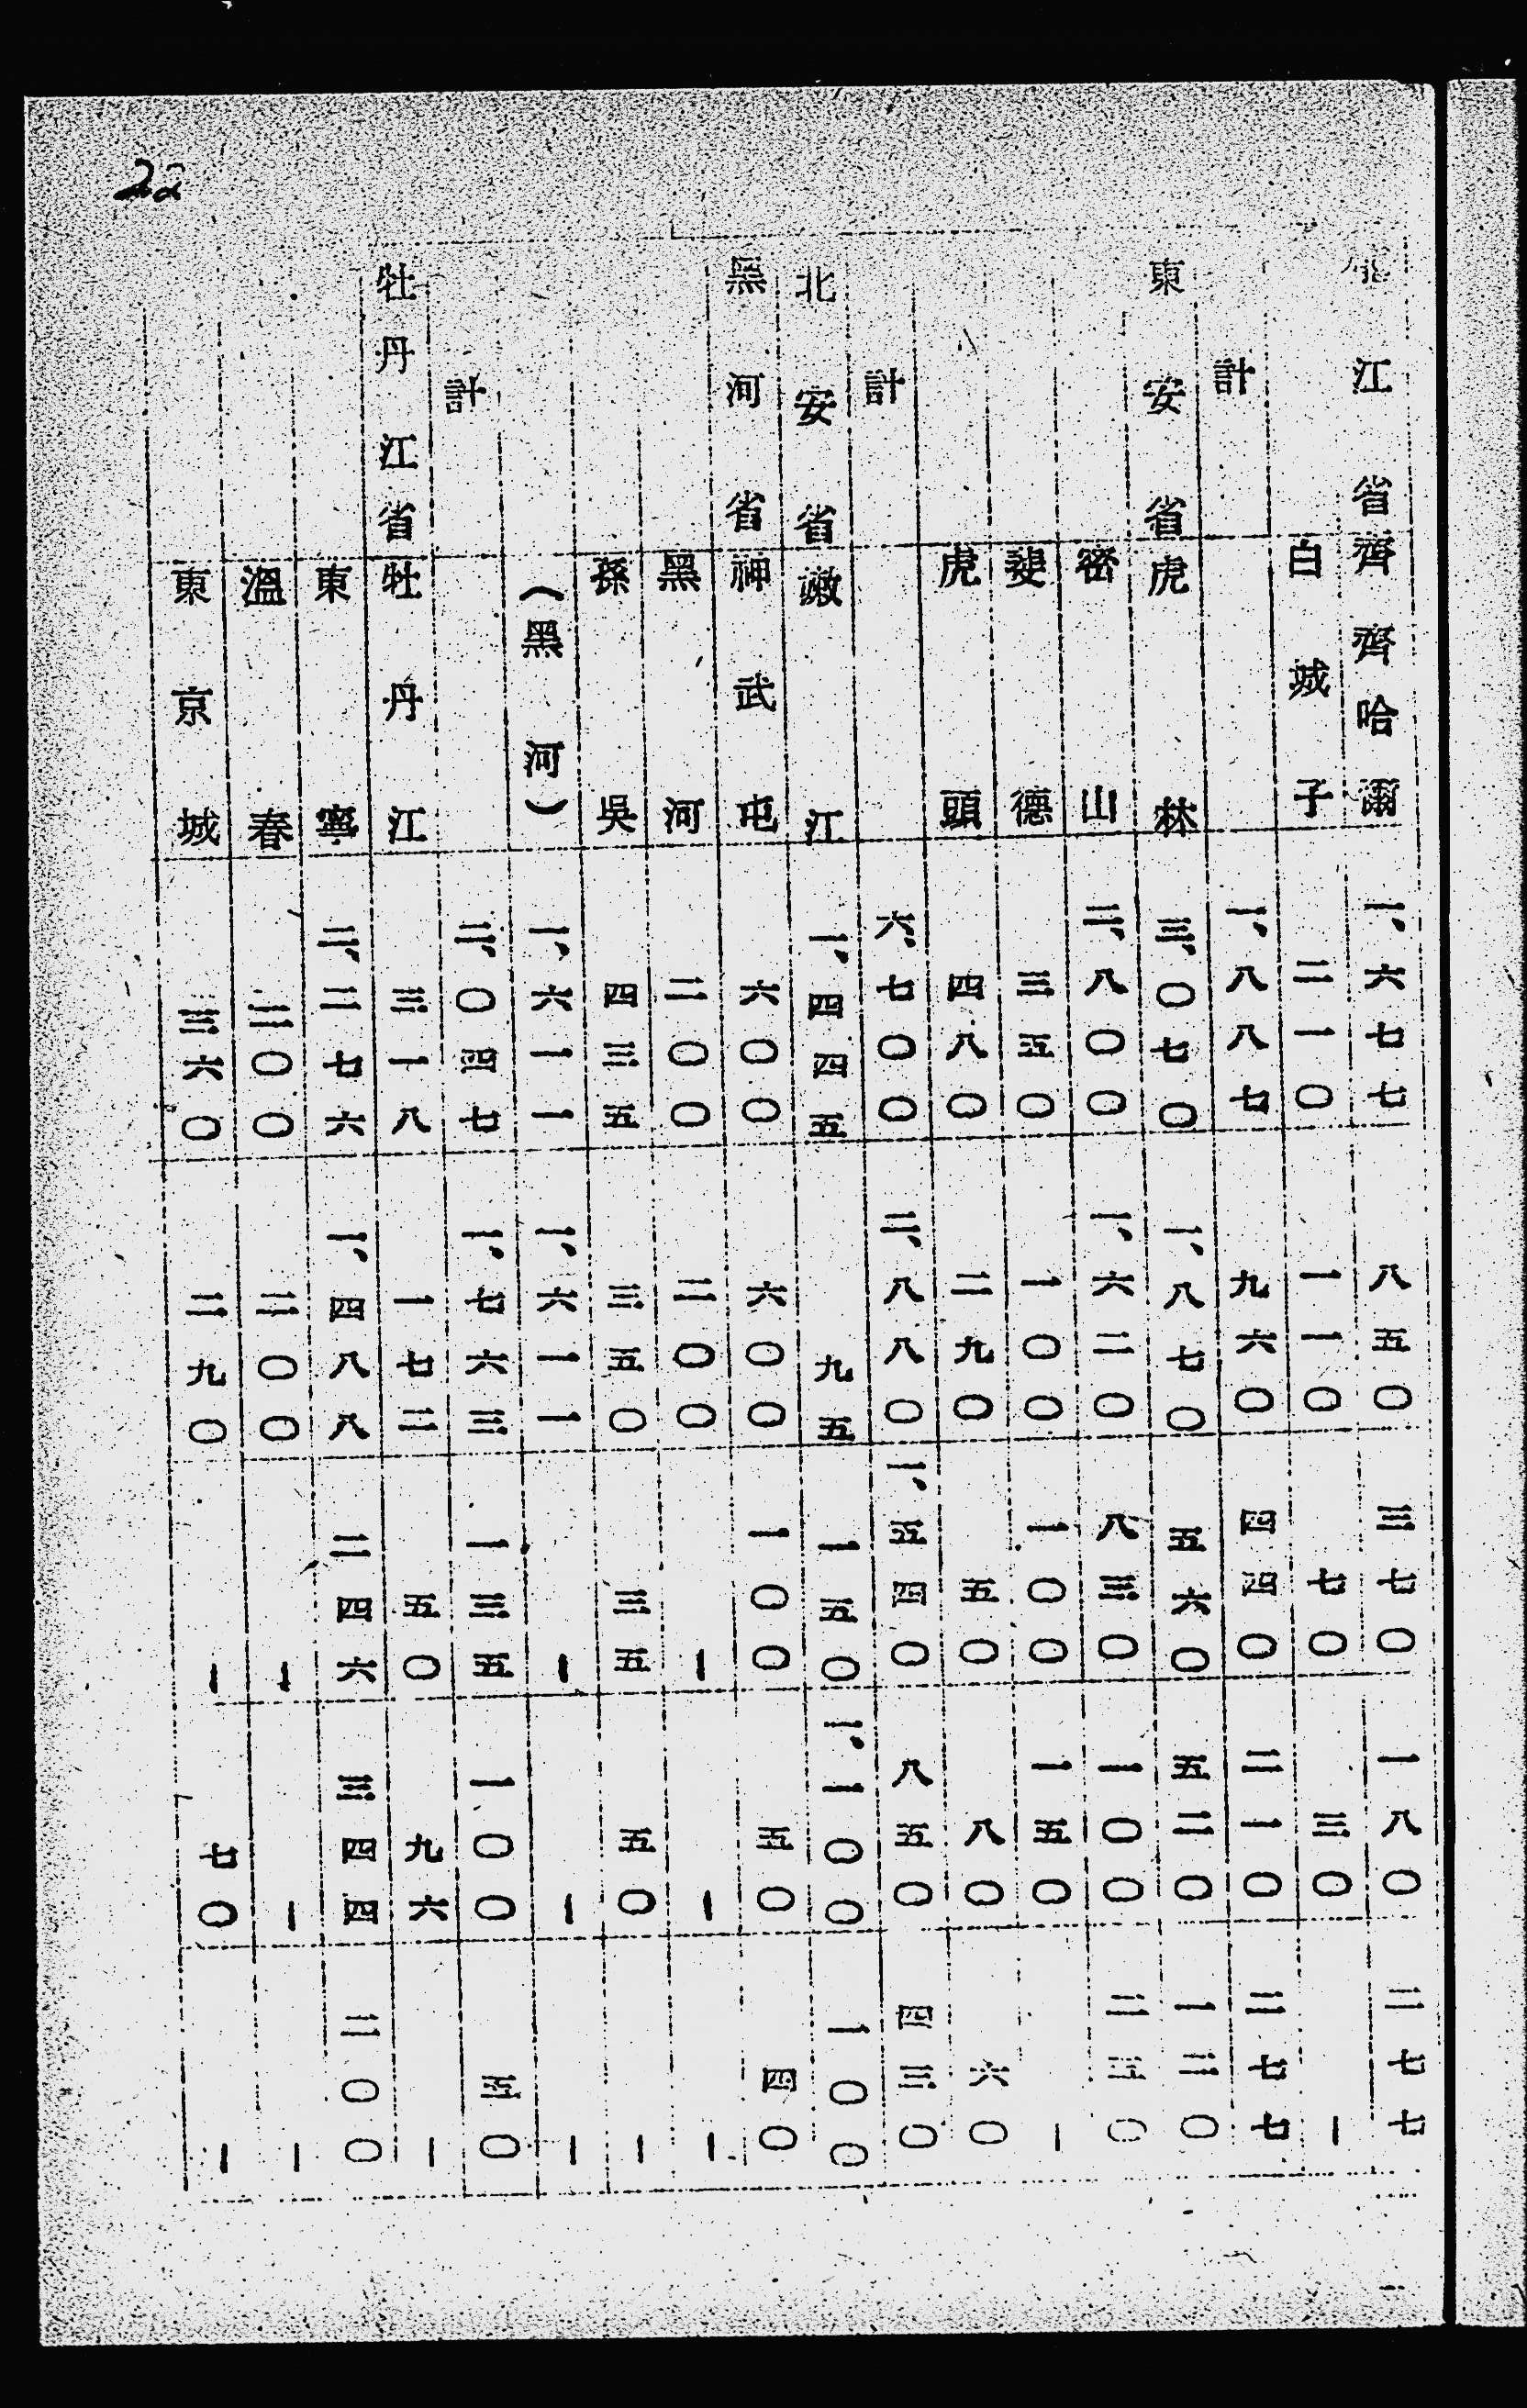 22
北江省 齊齊哈爾 一、六七七 八五〇 三七〇 一八〇 二七七
白城子 二一〇 一一〇 七〇 三〇 ー
計 一、八八七 九六〇 四四〇 二一〇 二七七
東安省 虎林 三、〇七〇 一、八七〇 五六〇 五二〇 一二〇
密山 二、八〇〇 一、六二〇 八三〇 一〇〇 二五〇
斐德 三五〇 一〇〇 一〇〇 一五〇 ー
虎頭 四八〇 二九〇 五〇 八〇 六〇
計 六、七〇〇 二、八八〇 一、五四〇 八五〇 四三〇
北安省 嫩江 一、四四五 九五 一五〇 一、一〇〇 一〇〇
黑河省 神武屯 六〇〇 六〇〇 一〇〇 五〇 四〇
黑河 二〇〇 二〇〇 ー ー ー
孫吳 四三五 三五〇 三五 五〇 ー
（黑河） 一、六一一 一、六一一 ー ー ー
計 二、〇四七 一、七六三 一三五 一〇〇 五〇
牡丹江省 牡丹江 三一八 一七二 五〇 九六 ー
東寧 二、二七六 一、四八八 二四六 三四四 二〇〇
溫春 二〇〇 二〇〇 ー ー ー
東京城 三六〇 二九〇 ー 七〇 ー